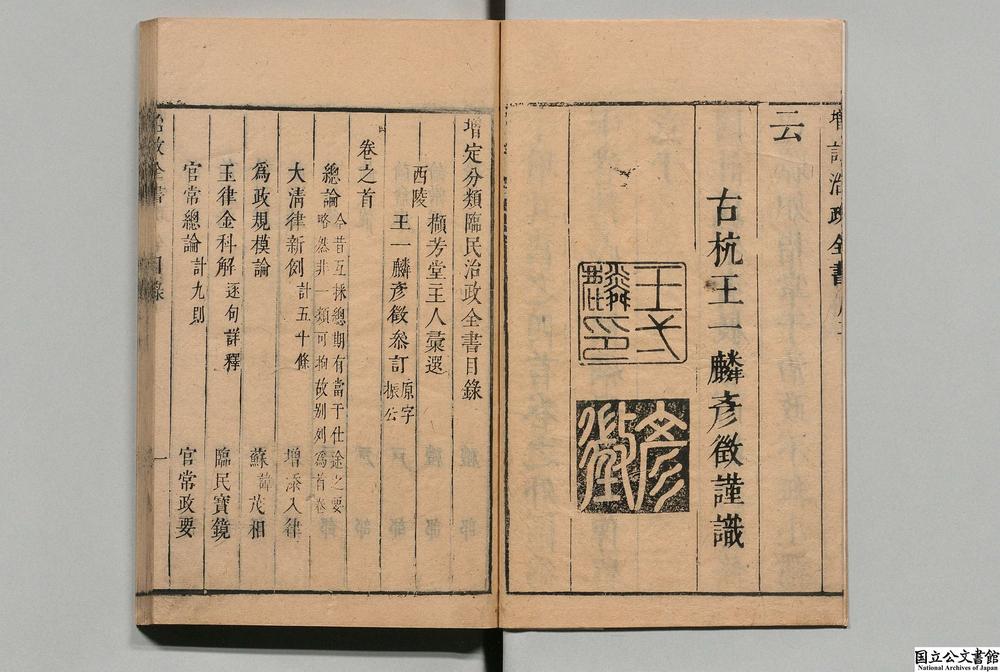 增訂治政全書
云
古杭王一麟彥徵謹識
王一麟印
彥徵
增定分類臨民治政全書目錄
西陵
擷芳堂主人彙選
王一麟彥徵叅訂
原字振公
卷之首
總論
今昔互採總期有當于仕途之要
略然非一類可拘故別列為首卷
大清律新例 計五十條 增添入律
為政規模論 蘇諱茂相
玉律金科解 逐句詳釋 臨民寶鏡
官常總論 計九則 官常政要
治政全書
目錄
一
国立公文書館
National Archives of Japan